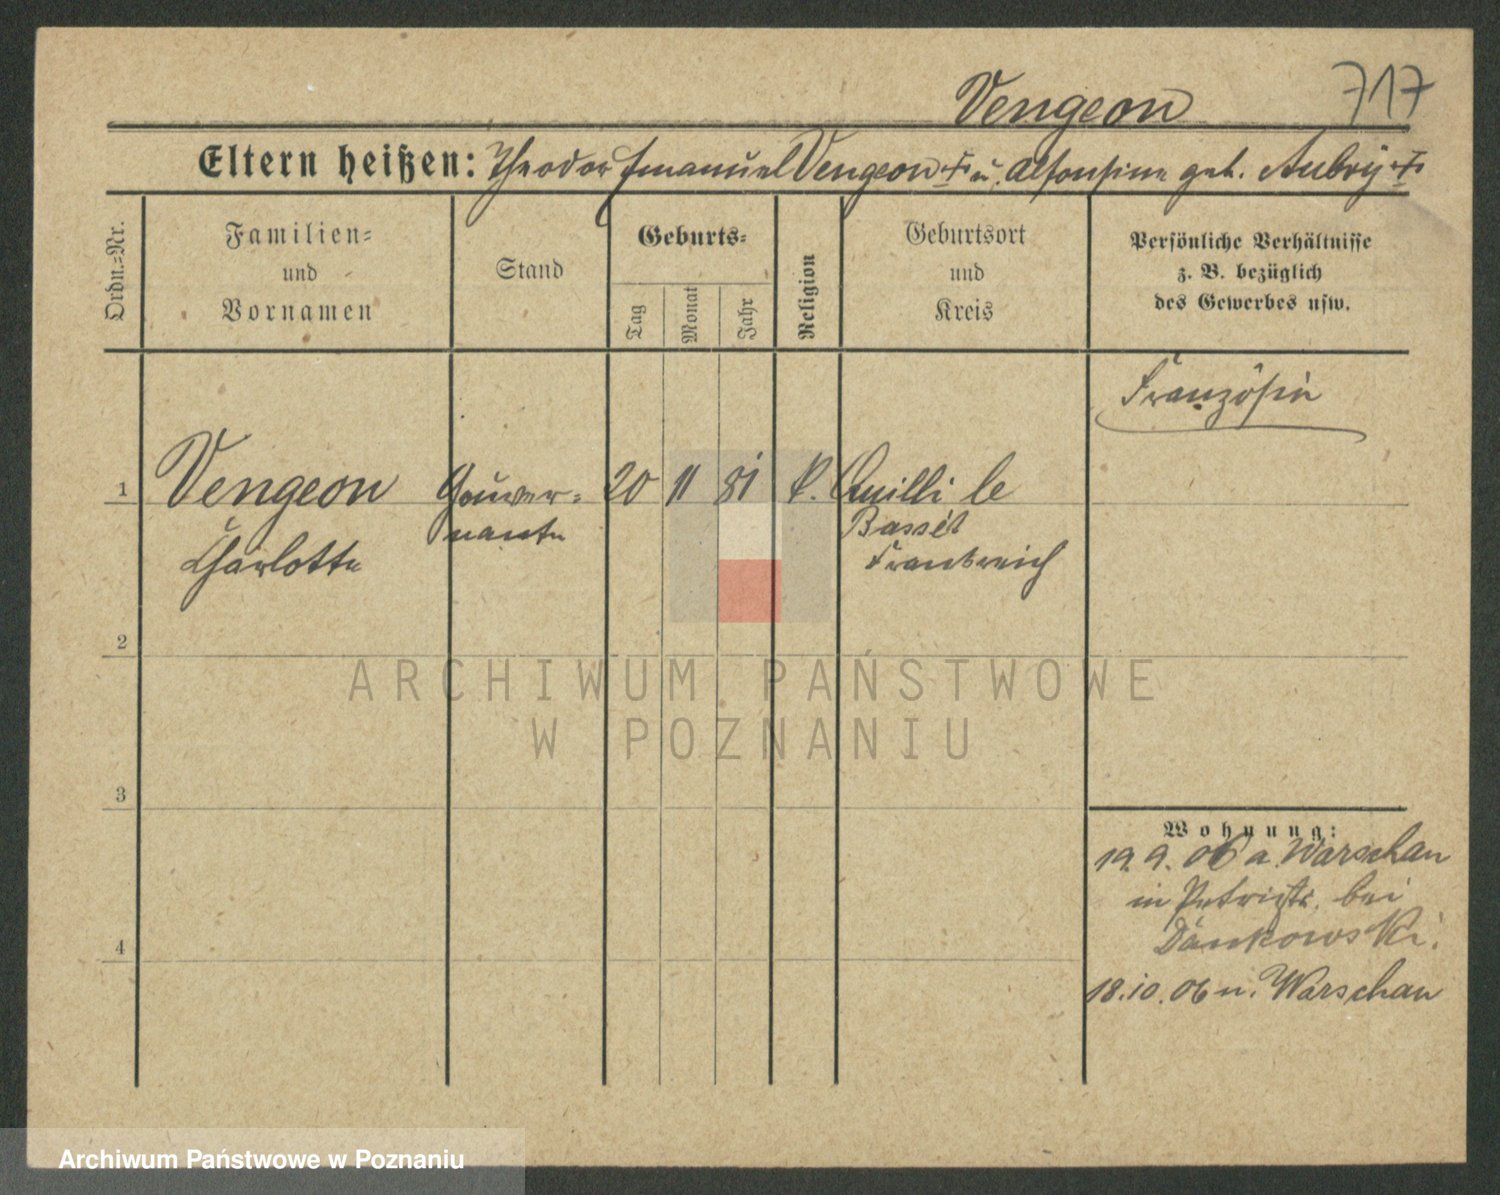 Vengeon 717
Eltern heißen: Theodor Emanuel Vengeon † u. Alfonsine geb. Aubry †
Ordn.-Nr.
Familien-
und
Vornamen
Stand
Geburts-
Tag
Monat
Jahr
Religion
Geburtsort
und
Kreis
Persönliche Verhältnisse
z. B. bezüglich
des Gewerbes usw.
Französin
1 Vengeon Gouver- 20 11 81 k. Quilli le
nante Basset
Charlotte Frankreich
2
3
4
Wohnung:
19.9.06 a. Warschau
in Petristr. bei
Dankowski.
18.10.06 n. Warschau
ARCHIWUM PAŃSTWOWE
W POZNANIU
Archiwum Państwowe w Poznaniu